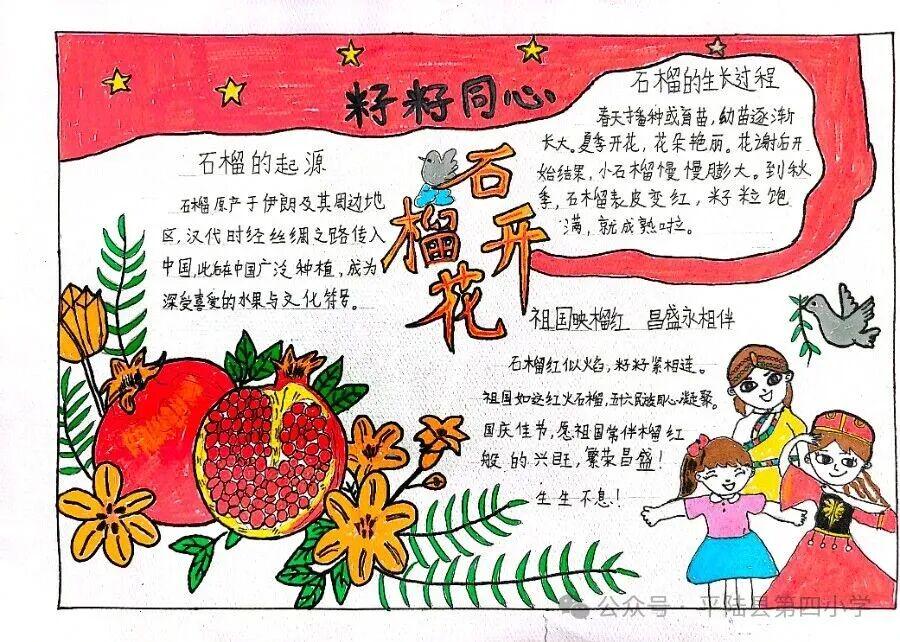 籽籽同心
石榴花开
石榴的起源
石榴原产于伊朗及其周边地
区,汉代时经丝绸之路传入
中国,此后在中国广泛种植,成为
深受喜爱的水果与文化符号。
石榴的生长过程
春天播种或育苗,幼苗逐渐
长大。夏季开花,花朵艳丽。花谢后开
始结果,小石榴慢慢膨大。到秋
季,石榴表皮变红,籽粒饱
满,就成熟啦。
祖国映榴红 昌盛永相伴
石榴红似火焰,籽籽紧相连。
祖国如这红火石榴,五十六民族同心凝聚。
国庆佳节,愿祖国常伴榴红
般的兴旺,繁荣昌盛!
生生不息!
公众号 · 平陆县第四小学